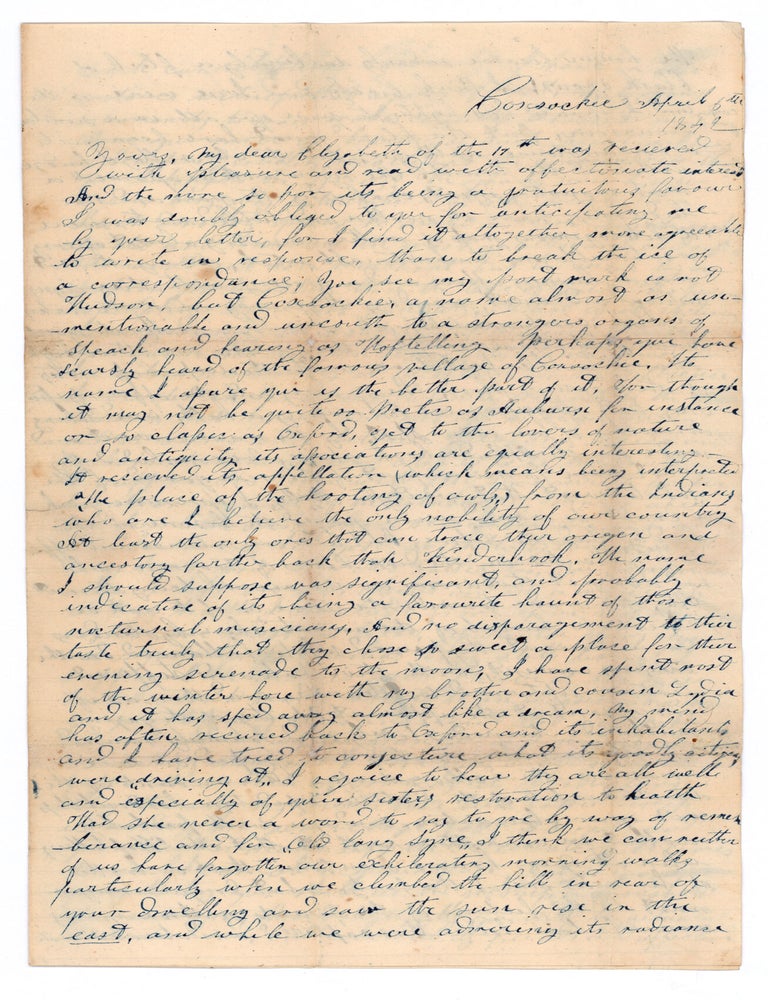 Coxsackie April 6th
1842
Yours, my dear Elizabeth of the 17th was recieved
with pleasure and read with affectionate interest
And the more so for its being a gratuitous favour
I was doubly obliged to you for anticipating me
by your letter, for I find it altogether more agreeable
to write in response, than to break the ice of
a correspondance; You see my post mark is not
Hudson, but Coxsackie, a name almost as un-
-mentionable and uncouth to a strangers organs of
speach and hearing as Noftelling. Perhaps you have
scarsly heard of the famous village of Coxsackie. Its
name I assure you is the better part of it, for though
it may not be quite so poetic as Auburn for instance
or so classic as Oxford, yet to the lovers of nature
and antiquity its associations are equally interesting -
It recieved its appellation (which means being interpreted
"The place of the hooting of owls,") from the Indians
who are I believe the only nobility of our country
At least the only ones that can trace their origen and
ancestory farther back than Kinderhook. The name
I should suppose was significant, and probably
indicative of its being a favourite haunt of those
nocturnal musicians, And no disparagement to their
taste truly that they chose so sweet a place for their
evening serenade to the moon; I have spent most
of the winter here with my brother and cousin Lydia
and it has sped away almost like a dream, My mind
has often recured back to Oxford and its inhabitants
and I have tried to conjecture what its goodly
were "driving at" I rejoice to hear they are all well
and especially of your sisters restoration to health
Had she never a word to say to me by way of remem
-berance and for "Old lang Syne" I think we can neither
of us have forgotten our exhilerating morning walks
particularly when we climbed the hill in rear of
your dwelling and saw the sun rise in the
east, and while we were admiring its radiance